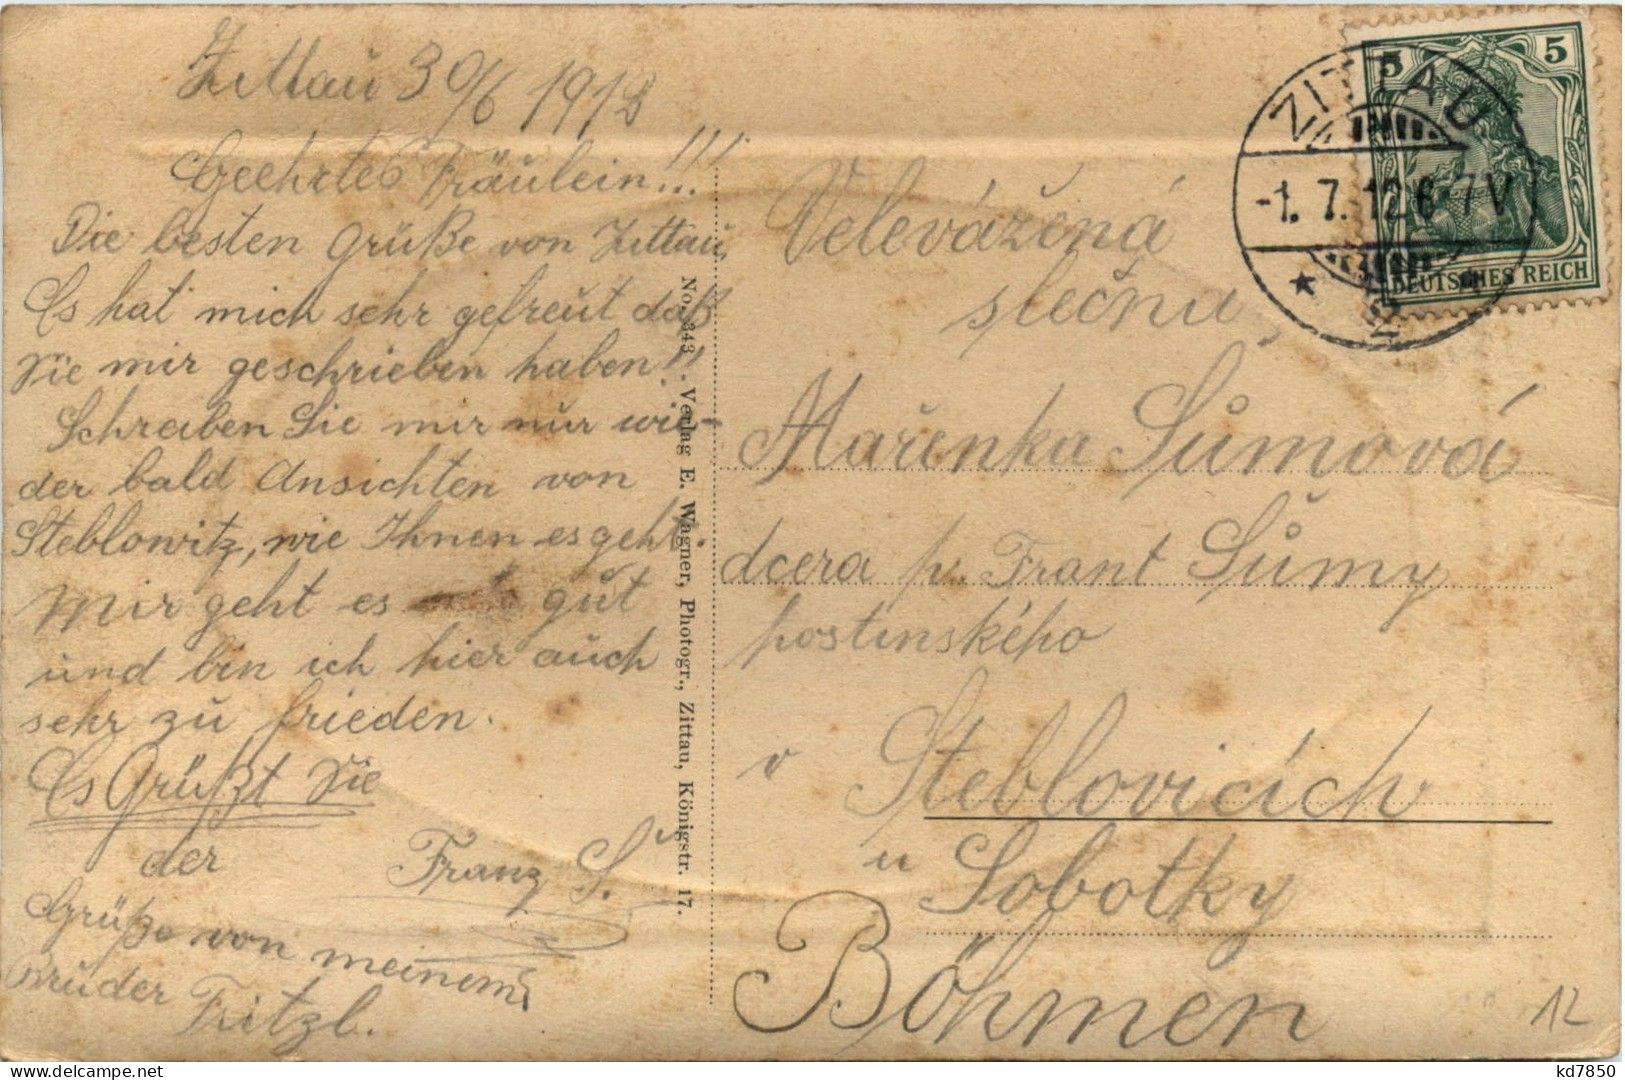 Zittau 30/6 1912
Geehrtes Fräulein!!!
Die besten Grüße von Zittau.
Es hat mich sehr gefreut daß
Sie mir geschrieben haben!!
Schreiben Sie mir nur wie-
der bald Ansichten von
Steblowitz, wie Ihnen es geht.
Mir geht es gut
und bin ich hier auch
sehr zu frieden.
Es Grüßt Sie
der Franz Š.
Grüße von meinem
Bruder Fritzl.
No. 343 - Verlag E. Wagner, Photogr., Zittau, Königstr. 17.
ZITTAU
-1. 7. 12 6-7V
* 2
5 5
DEUTSCHES REICH
Velevážená
slečna,
Mařenka Šůmová
dcera p. Frant Šůmy
hostinského
v Steblovicích
u Sobotky
Böhmen
12
kd7850